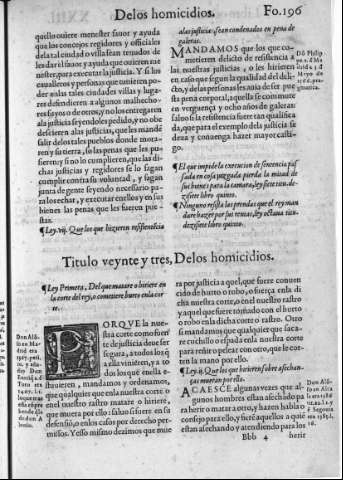 Delos homicidios. Fo.196
quello quiere menester fauor y ayuda
que los concejos regidores y officiales
dela tal ciudad o villa sean tenudos de
les dar el fauor y ayuda que ouieren me
nester, para executar la justicia. Y si los
caualleros y personas que tuuieren po-
der enlas tales ciudades villas y luga-
res defendieren a algunos malhecho-
res suyos o de otros, y no los entregaren
ala justicia seyendoles pedido, y no obe
descieren alas justicias, que les mandē
salir delos tales pueblos donde mora-
ren y su tierra, so las penas que les pu-
sieren y si no lo cumplieren, que las di-
chas justicias y regidores se lo fagan
cumplir contra su voluntad, y fagan
junta de gente seyendo necessario pa-
ra lo echar, y executar enellos y en sus
bienes las penas que les fueren pue-
stas.
¶ Ley. vij. Que los que hizieren resistencia
alas justicias, sean condenados en pena de
galeras.
MANDAMOS que los que co-
metieren delicto de resistencia a
las nuestras justicias, o les hirieren
en caso que segun la qualidad del deli-
cto, y delas personas les auia de ser pue
sta pena corporal, aquella se comute
en verguença y ocho años de galeras
saluo si la resistencia fuere tan qualifica
da, que para exemplo dela justicia se
deua y conuenga hazer mayor casti-
go.
¶ El que impide la execucion de sentencia pas
sada en cosa juzgada, pierda la mitad de
sus bienes para la camara, ley siete titu. de-
zisiete libro quinto.
¶ Ninguno resista las prendas que el rey man
dare hazer por sus rentas, ley octaua titu.
dezisiete libro quinto.
Titulo veynte y tres, Delos homicidios.
¶ Ley Primera, Del que matare o hiriere en
la corte del rey, o cometiere hurto enla cor
te.
PORQVE la nue-
stra corte como fuen
te de justicia deue ser
segura, a todos los q̄
a ella vinieren, y a to
dos los que enella e-
stuuieren, mandamos y ordenamos,
que qualquier que enla nuestra corte o
en el nuestro rastro matare o hiriere,
que muera por ello: saluo si fuere en su
defensiō, o enlos casos por derecho per-
missos. Y esso mismo dezimos que mue
ra por justicia a quel, que fuere conuen
cido de hurto o robo, o fuerça enla di
cha nuestra corte, o enel nuestro rastro
y aquel que fuere tomado con el hurto
o robo enla dicha corte o rastro. Otro
si mandamos que qualquier que saca-
re cuchillo o espada enla nuestra corte
para reñir o pelear con otro, que le cor-
ten la mano por ello.
¶ Ley. ij. Que los que hirieren sobre asechan-
ças mueran por ello.
ACAESCE algunas vezes que al-
gunos hombres estan asechādo pa
ra herir o matar a otro, y hazen habla o
consejo para ello, y fiere aquellos a quiē
estan asechando y atendiendo para los
Bbb 4 herir